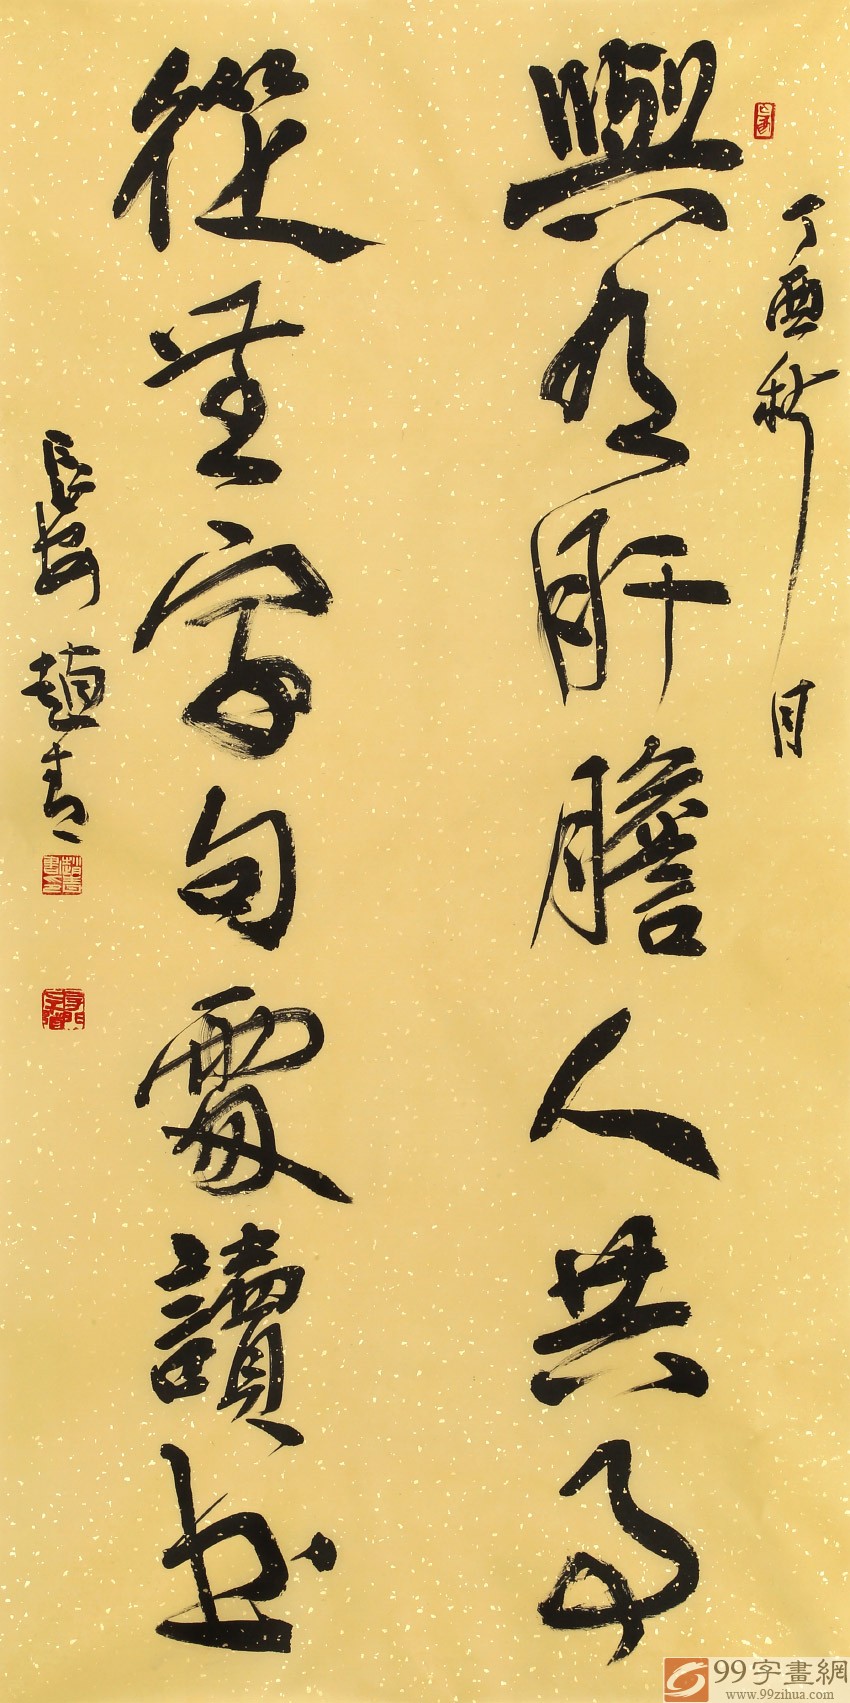 丁酉秋月
與有肝膽人共事
從無字句處讀書
長安趙青
99字畫網
www.99zihua.com